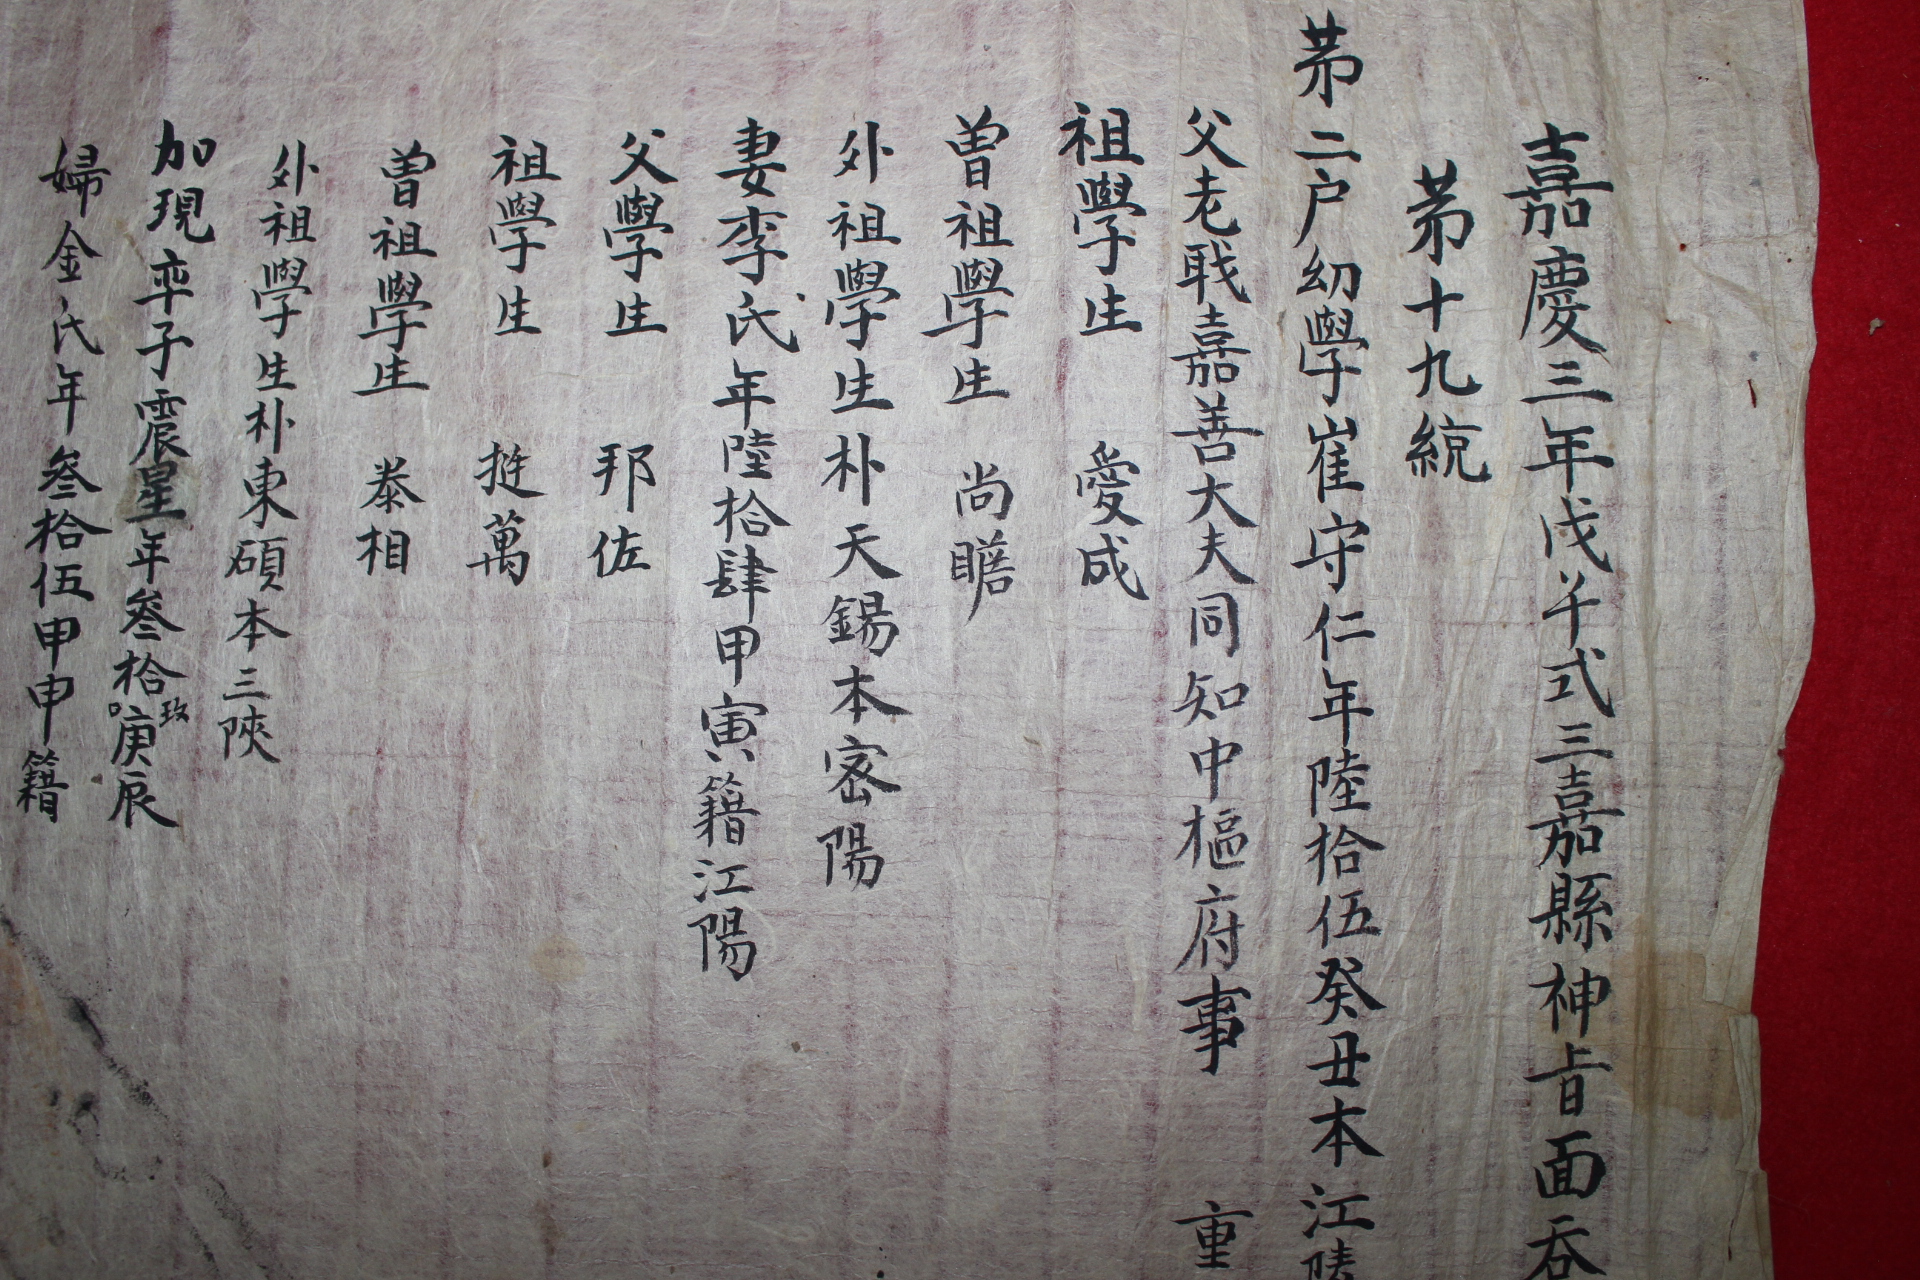 嘉慶三年戊午式三嘉縣神旨面吞
第十九統
第二戶幼學崔守仁年陸拾伍癸丑本江陵
父老職嘉善大夫同知中樞府事 重
祖學生 愛成
曾祖學生 尚瞻
外祖學生朴天錫本密陽
妻李氏年陸拾肆甲寅籍江陽
父學生 邦佐
祖學生 挺萬
曾祖學生 泰相
外祖學生朴東碩本三陜
加現率子震星年參拾玖庚辰
婦金氏年參拾伍甲申籍